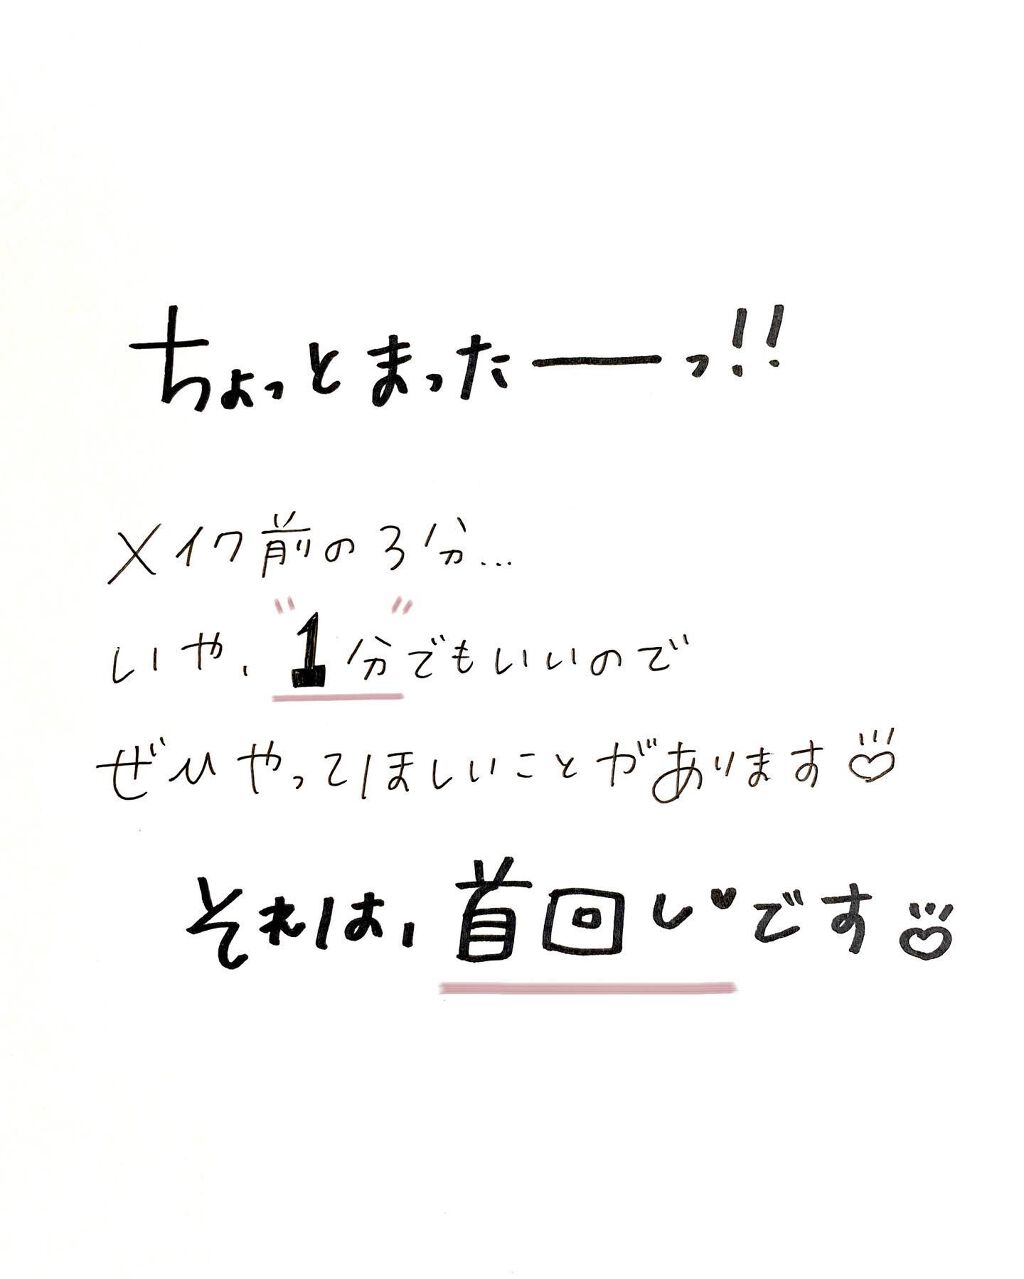 ちょっとまったーーっ!!
メイク前の3分...
いや、"1分"でもいいので
ぜひやってほしいことがあります♡
それは、首回し♥です♡